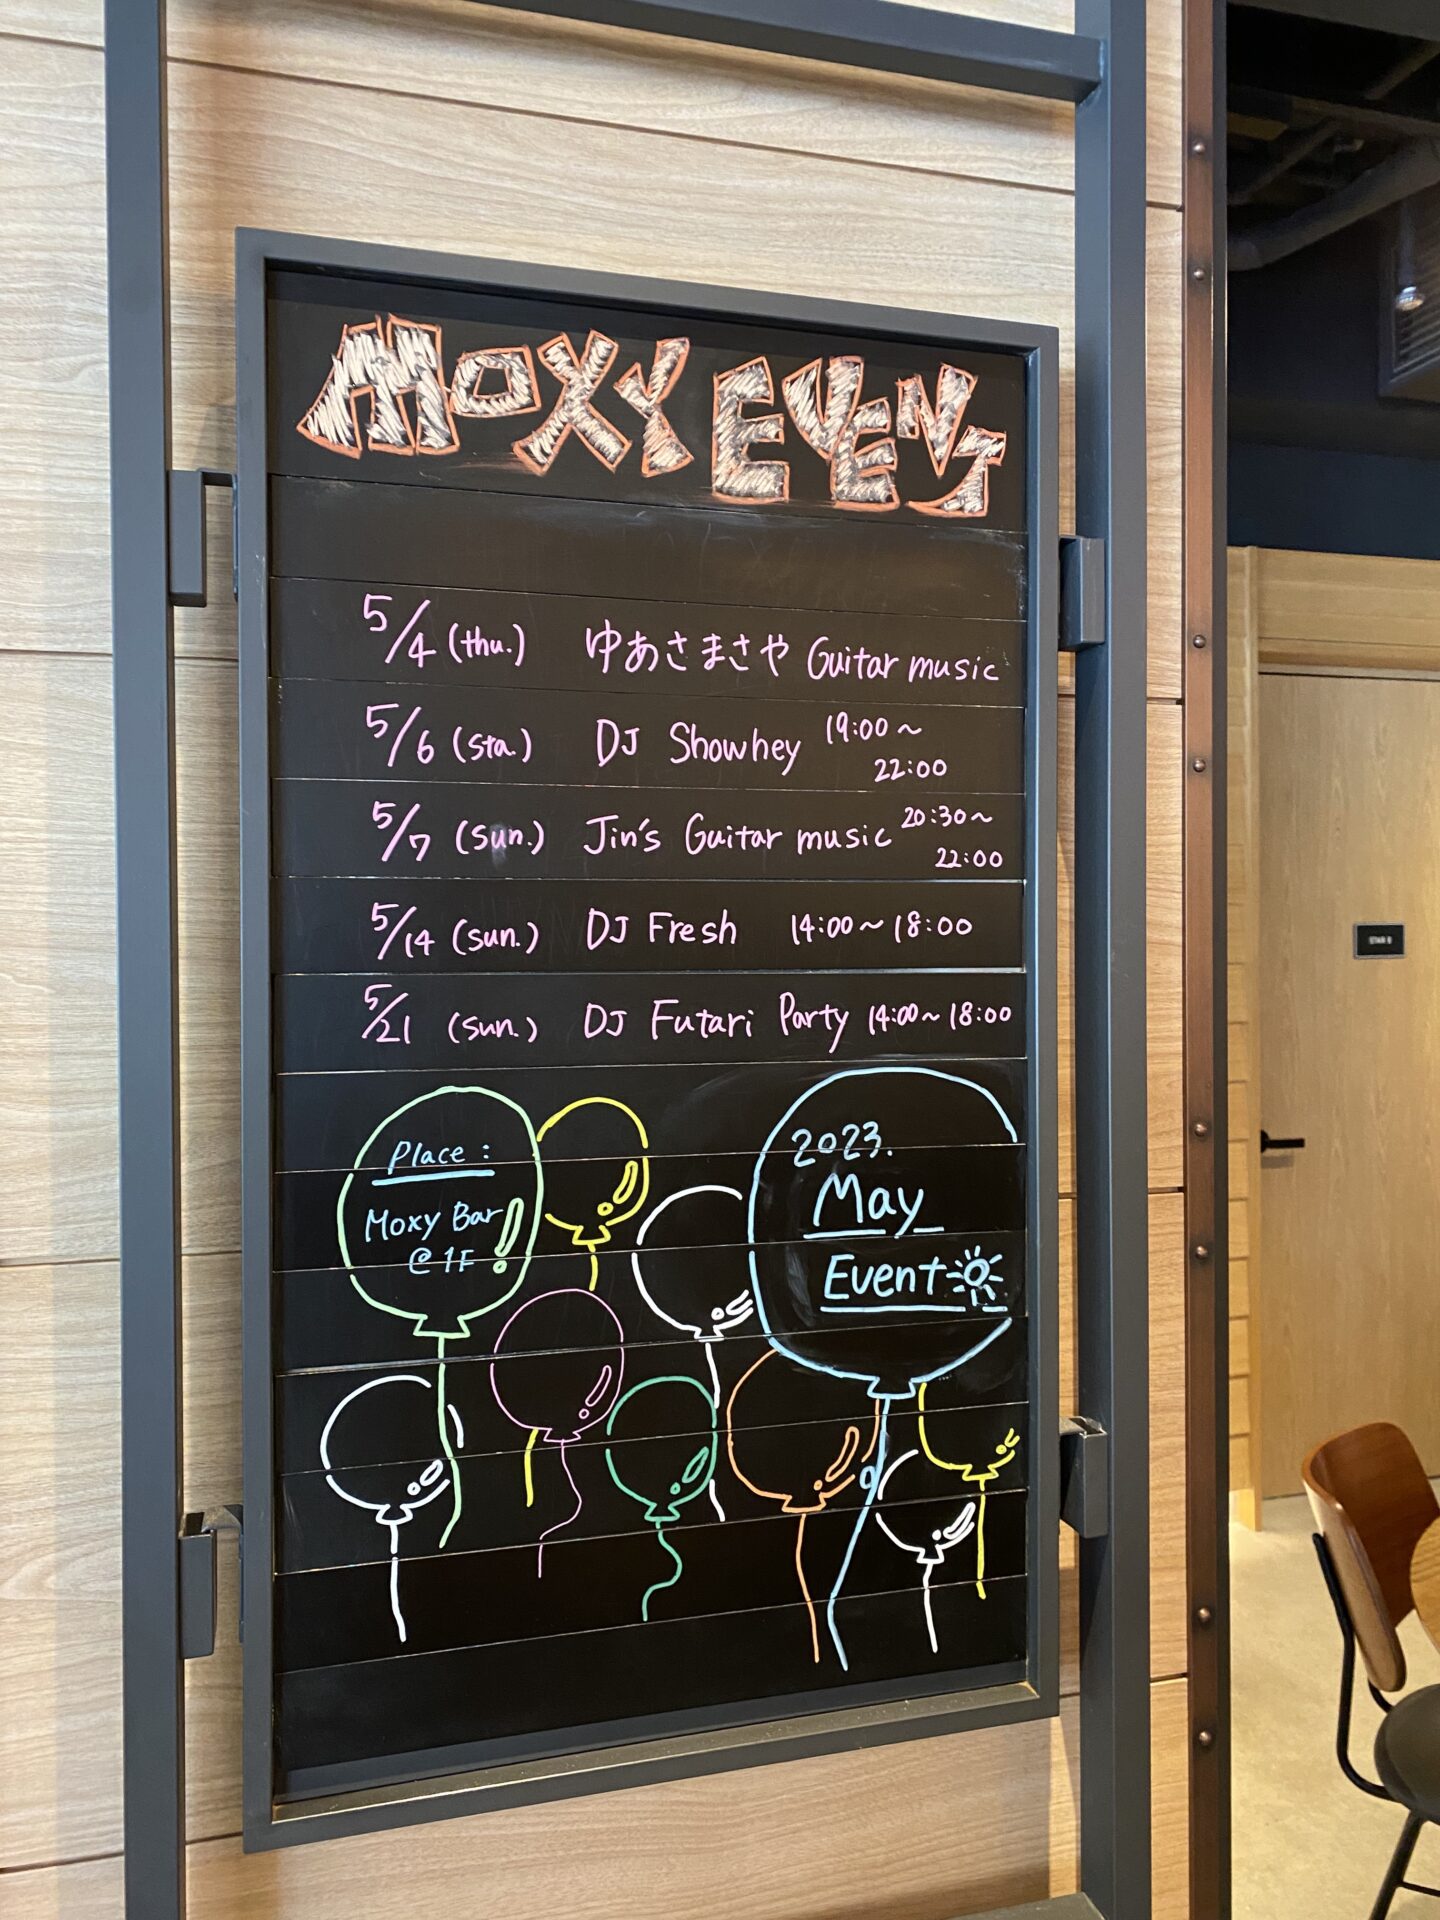 MOXY EVENT
5/4 (thu.) ゆあさまさや Guitar music
5/6 (sta.) DJ Showhey 19:00～
22:00
5/7 (sun.) Jin's Guitar music 20:30～
22:00
5/14 (sun.) DJ Fresh 14:00～18:00
5/21 (sun.) DJ Futari Party 14:00～18:00
Place:
Moxy Bar
@1F
2023.
May
Event